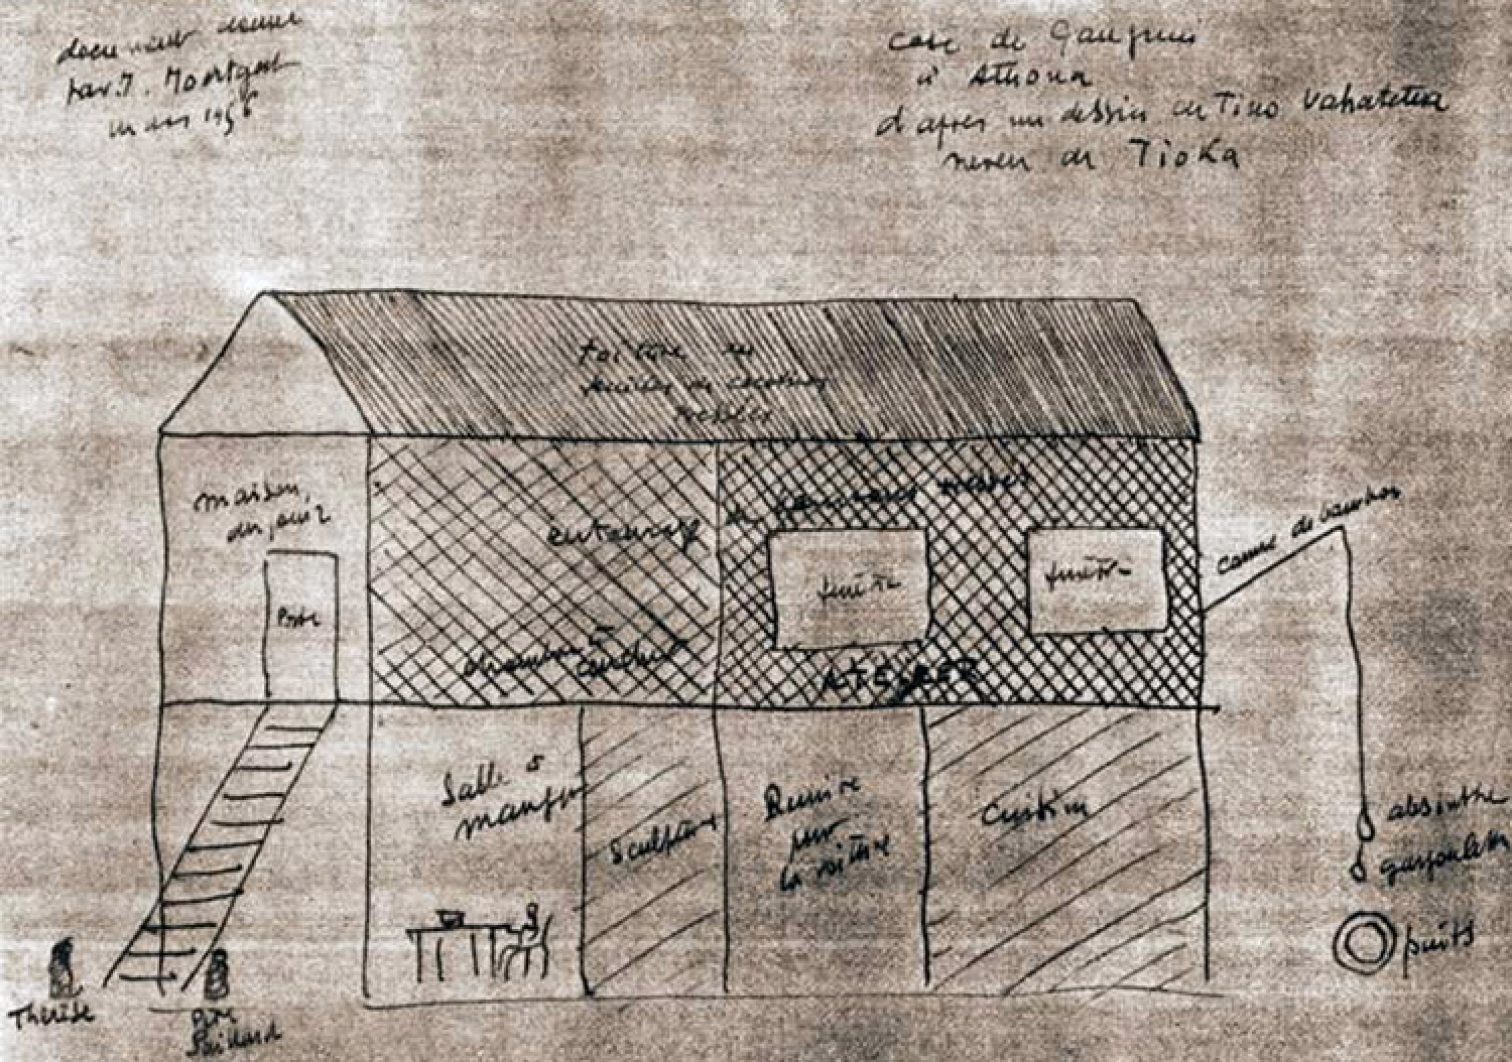 document donné
par J. Moortgat
en mars 1956
case de Gauguin
à Athona
d'après un dessin de Tino Vahatetua
neveu de Tioka
toiture en
feuilles de cocotier
tressées
maison
du jouir
Porte
entourage de bambous tressés
fenêtre
fenêtre
canne de bambou
chambre à
coucher
ATELIER
Salle à
manger
Sculpture
Remise
pour
la voiture
Cuisine
absinthe
puits
Thérèse
Père
Paillard